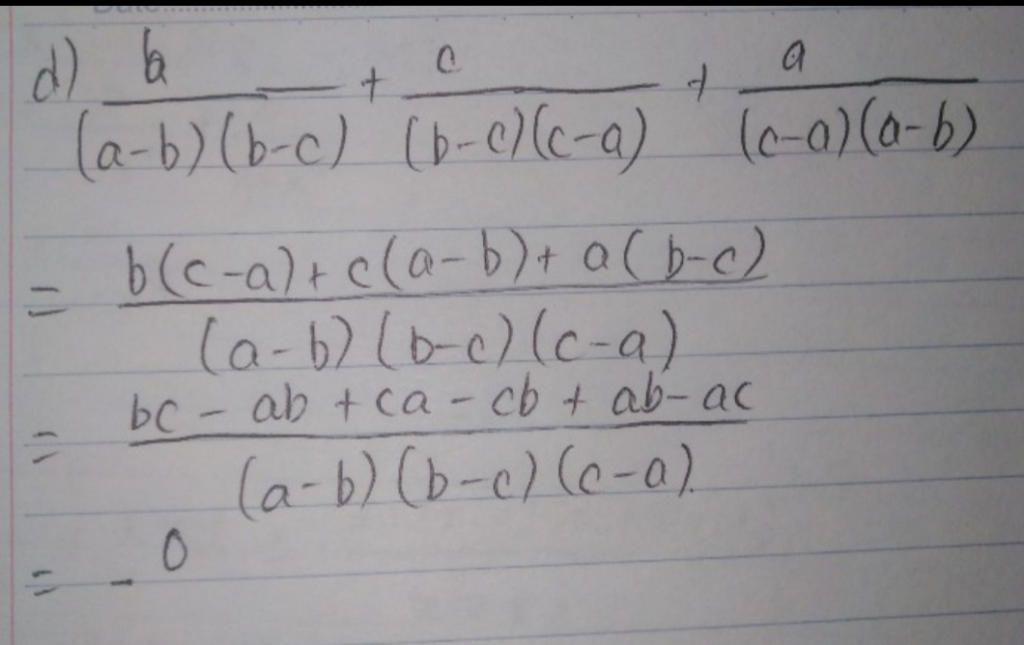 Date
d) b/((a-b)(b-c)) + c/((b-c)(c-a)) + a/((c-a)(a-b))
= (b(c-a)+c(a-b)+a(b-c))/((a-b)(b-c)(c-a))
= (bc-ab+ca-cb+ab-ac)/((a-b)(b-c)(c-a)).
= - 0